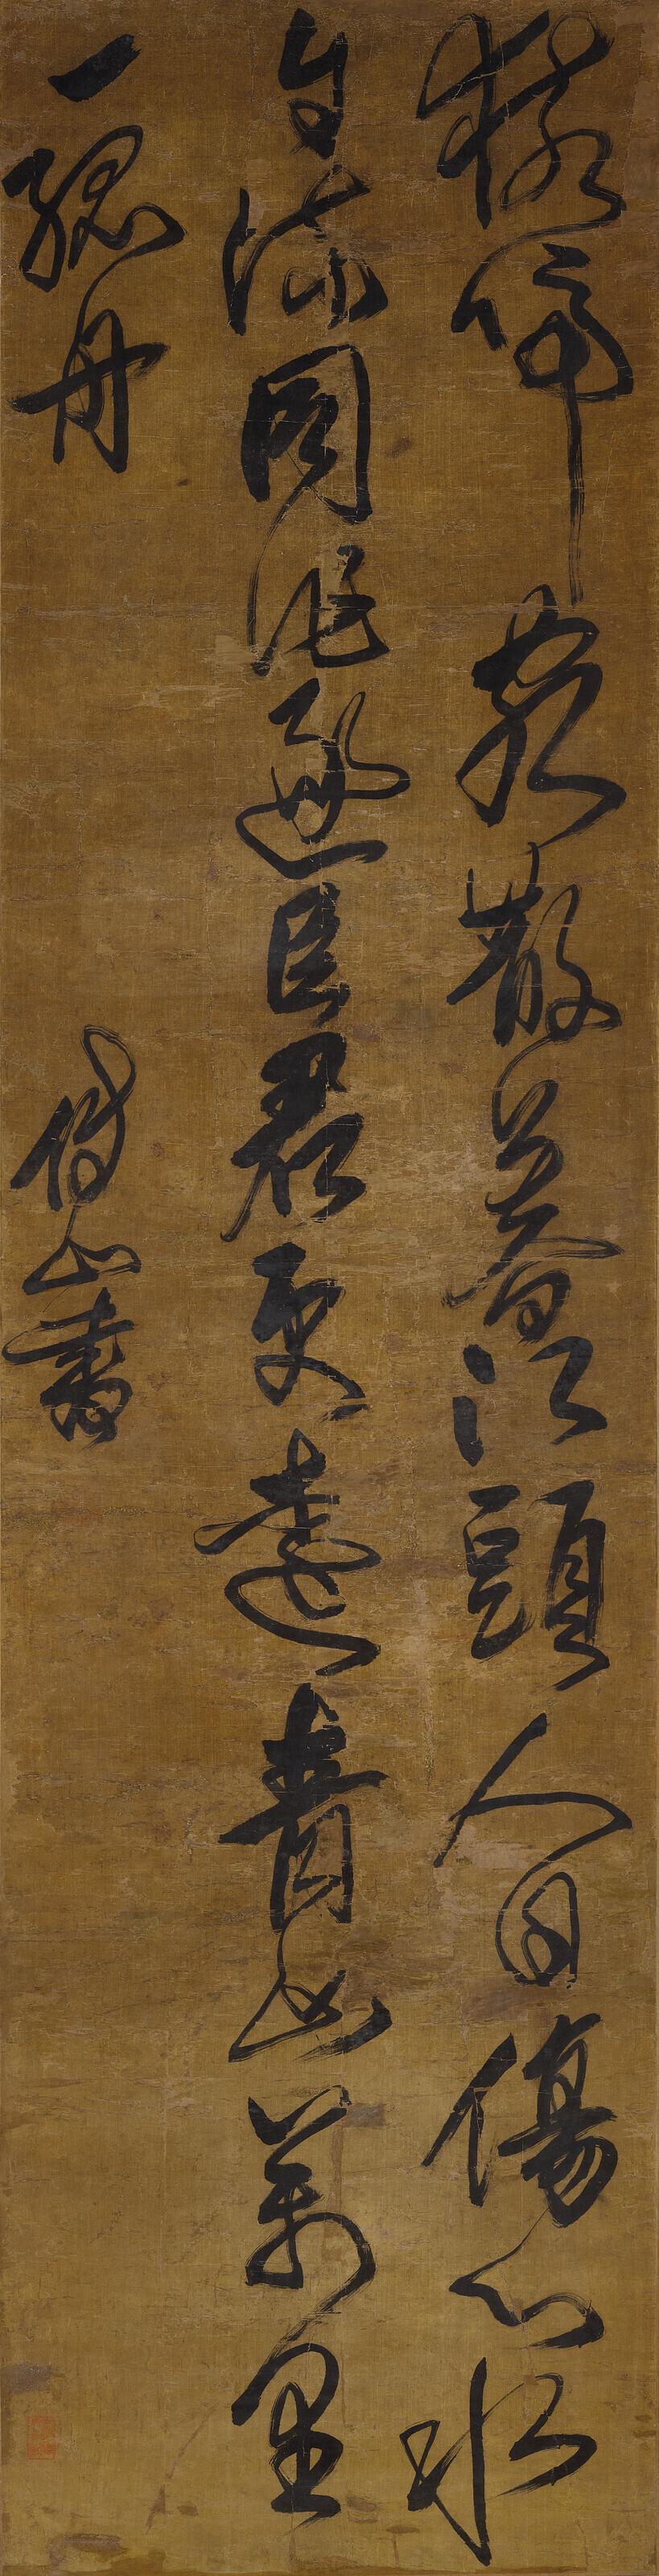 猿啼客散暮江頭人自傷心水
自流同作逐臣君更遠青山萬里
一孤舟
傅山書